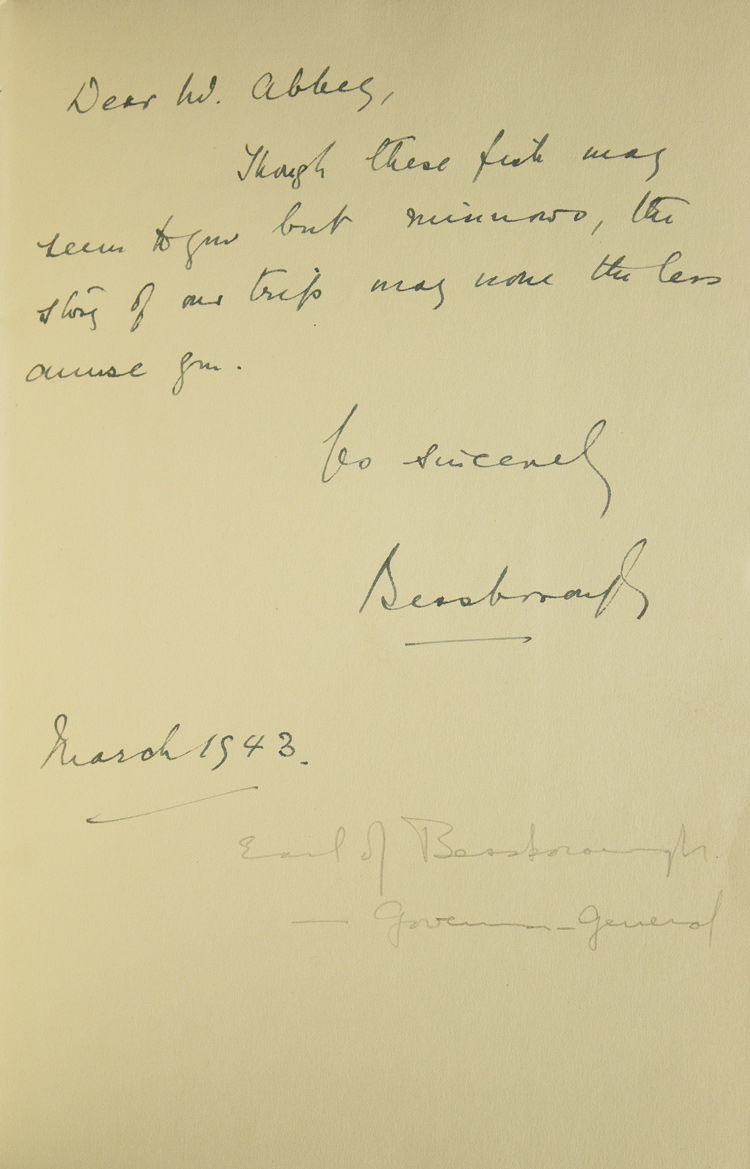 Dear Mr. Abbey,
Though these fish may
seem to you but minnows, the
story of our trip may none the less
amuse you.
Yrs sincerely
Bessborough
March 1943.
Earl of Bessborough.
— Governor-General